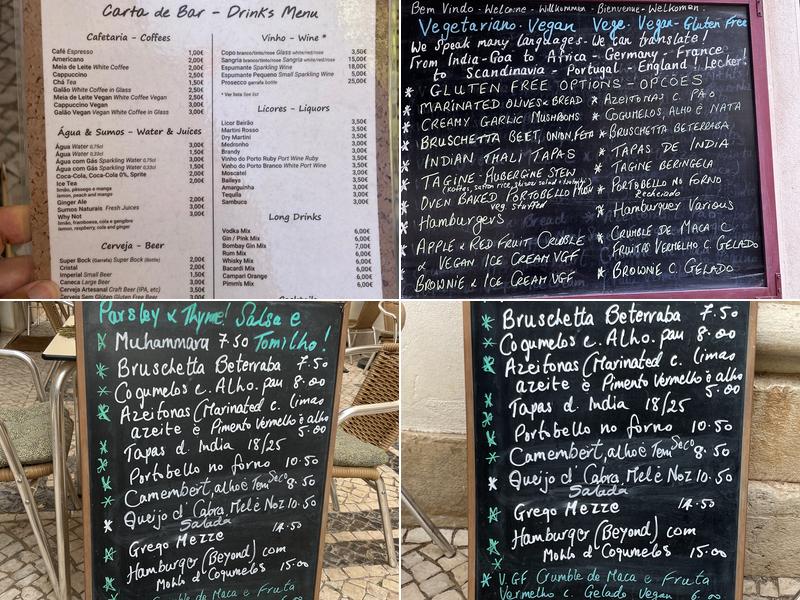 Carta de Bar – Drinks Menu
Cafetaria - Coffees
Café Espresso 1,00€
Americano 2,00€
Meia de Leite White Coffee 2,00€
Cappuccino 2,50€
Chá Tea 1,50€
Galão White Coffee 2,50€
Meia de Leite White Coffee Vegan 2,50€
Cappuccino Vegan 3,00€
Galão Vegan White Coffee Vegan 3,00€
Água & Sumos - Water & Juices
Água Water 0,75cl 3,00€
Água Water 0,33cl 1,50€
Água com Gás Sparkling Water 0,75cl 3,00€
Água com Gás Sparkling Water 0,33cl 1,50€
Coca-Cola, Coca-Cola 0%, Sprite 2,00€
Ice Tea 2,00€
limão, pêssego e manga
lemon, peach and mango
Ginger Ale 2,00€
Sumos Naturais Fresh Juices 3,00€
Why Not 3,00€
limão, framboesa, cola e gengibre
lemon, raspberry, cola and ginger
Cerveja - Beer
Super Bock (Garrafa) Super Bock (Bottle) 2,00€
Cristal 2,00€
Imperial Small Beer 1,50€
Caneca Large Beer 3,00€
Cerveja Artesanal Craft Beer (IPA, etc)
Cerveja Sem Glúten Gluten Free Beer
Vinho - Wine *
Copo branco/tinto/rose Glass white/red/rose 3,50€
Sangria branco/tinto/rose Sangria white/red/rose 15,00€
Espumante Sparkling Wine 18,00€
Espumante Pequeno Small Sparkling Wine 5,00€
Prosecco garrafa bottle 25,00€
* Ver lista See list
Licores - Liquors
Licor Beirão 3,50€
Martini Rosso 3,50€
Dry Martini 3,50€
Medronho 3,50€
Brandy 3,00€
Vinho do Porto Ruby Port Wine Ruby 3,50€
Vinho do Porto Branco White Port Wine 3,50€
Moscatel 3,00€
Baileys 3,50€
Amarguinha 3,00€
Tequila 3,00€
Sambuca 3,00€
Long Drinks
Vodka Mix 6,00€
Gin / Pink Mix 6,00€
Bombay Gin Mix 7,00€
Rum Mix 6,00€
Whisky Mix 6,00€
Bacardi Mix 6,00€
Campari Orange 6,00€
Pimm's Mix 6,00€
Bem Vindo - Welcome - Willkommen - Bienvenue - Welkomen -
Vegetariano - Vegan Vege. Vegan - Gluten Free
We Speak many languages - We can translate!
From India - Goa to Africa - Germany - France
to Scandinavia - Portugal - England! Lecker!
* GLUTEN FREE OPTIONS - OPÇÕES
* MARINATED OLIVES & BREAD * AZEITONAS C. PÃO
* CREAMY GARLIC MUSHROOMS * COGUMELOS, ALHO & NATA
* BRUSCHETTA BEET, ONION, FETA * BRUSCHETTA BETERRABA
* INDIAN THALI TAPAS * TAPAS DE INDIA
* TAGINE - AUBERGINE STEW * TAGINE BERINGELA
* OVEN BAKED PORTOBELLO MUSH * PORTOBELLO NO FORNO
veg. stuffed Recheiado
* Hamburgers * Hamburguer Various
* APPLE & RED FRUIT CRUMBLE * CRUMBLE DE MACA C
& VEGAN ICE CREAM VGF FRUITAS VERMELHO C. GELADO
* BROWNIE & ICE CREAM VGF * BROWNIE C. GELADO
Parsley & Thyme! Salsa e
* Muhammara 7.50 Tomilho!
* Bruschetta Beterraba 7.50
* Cogumelos c. Alho. pau 8.00
* Azeitonas (Marinated c. limao
azeite è Pimento Vermelho è alho
5.00
* Tapas d. India 18/25
* Portobello no forno 10.50
* Camembert, alho è Tom Seco 8.50
* Queijo d' Cabra, Mel è Noz 10.50
Salada
* Grego Mezze 14.50
* Hamburger (Beyond) com
Molho d Cogumelos 15.00
Crumble de Maca e Fruta
* Bruschetta Beterraba 7.50
* Cogumelos c. Alho. pau 8.00
* Azeitonas (Marinated c. limao
azeite è Pimento Vermelho è alho
5.00
* Tapas d. India 18/25
* Portobello no forno 10.50
* Camembert, alho è Tom Seco 8.50
* Queijo d' Cabra, Mel è Noz 10.50
Salada
* Grego Mezze 14.50
* Hamburger (Beyond) com
Molho d Cogumelos 15.00
* V.GF Crumble de Maca e Fruta
Vermelho c. Gelado Vegan 6.00